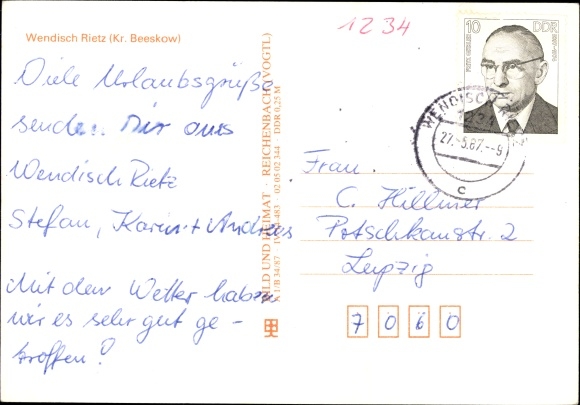 Wendisch Rietz (Kr. Beeskow)
1234
Viele Urlaubsgrüße
senden Dir aus
Wendisch Rietz
Stefan, Karin + Andreas
Mit dem Wetter haben
wir es sehr gut ge-
troffen!
BILD UND HEIMAT · REICHENBACH (VOGTL)
02 05 02 344 DDR 0,25 M
K 1/B 34/87
10 DDR
WENDISCH
1234
27.-5.87.--9
c
Frau
C. Hillmer
Leipzig
7 0 6 0